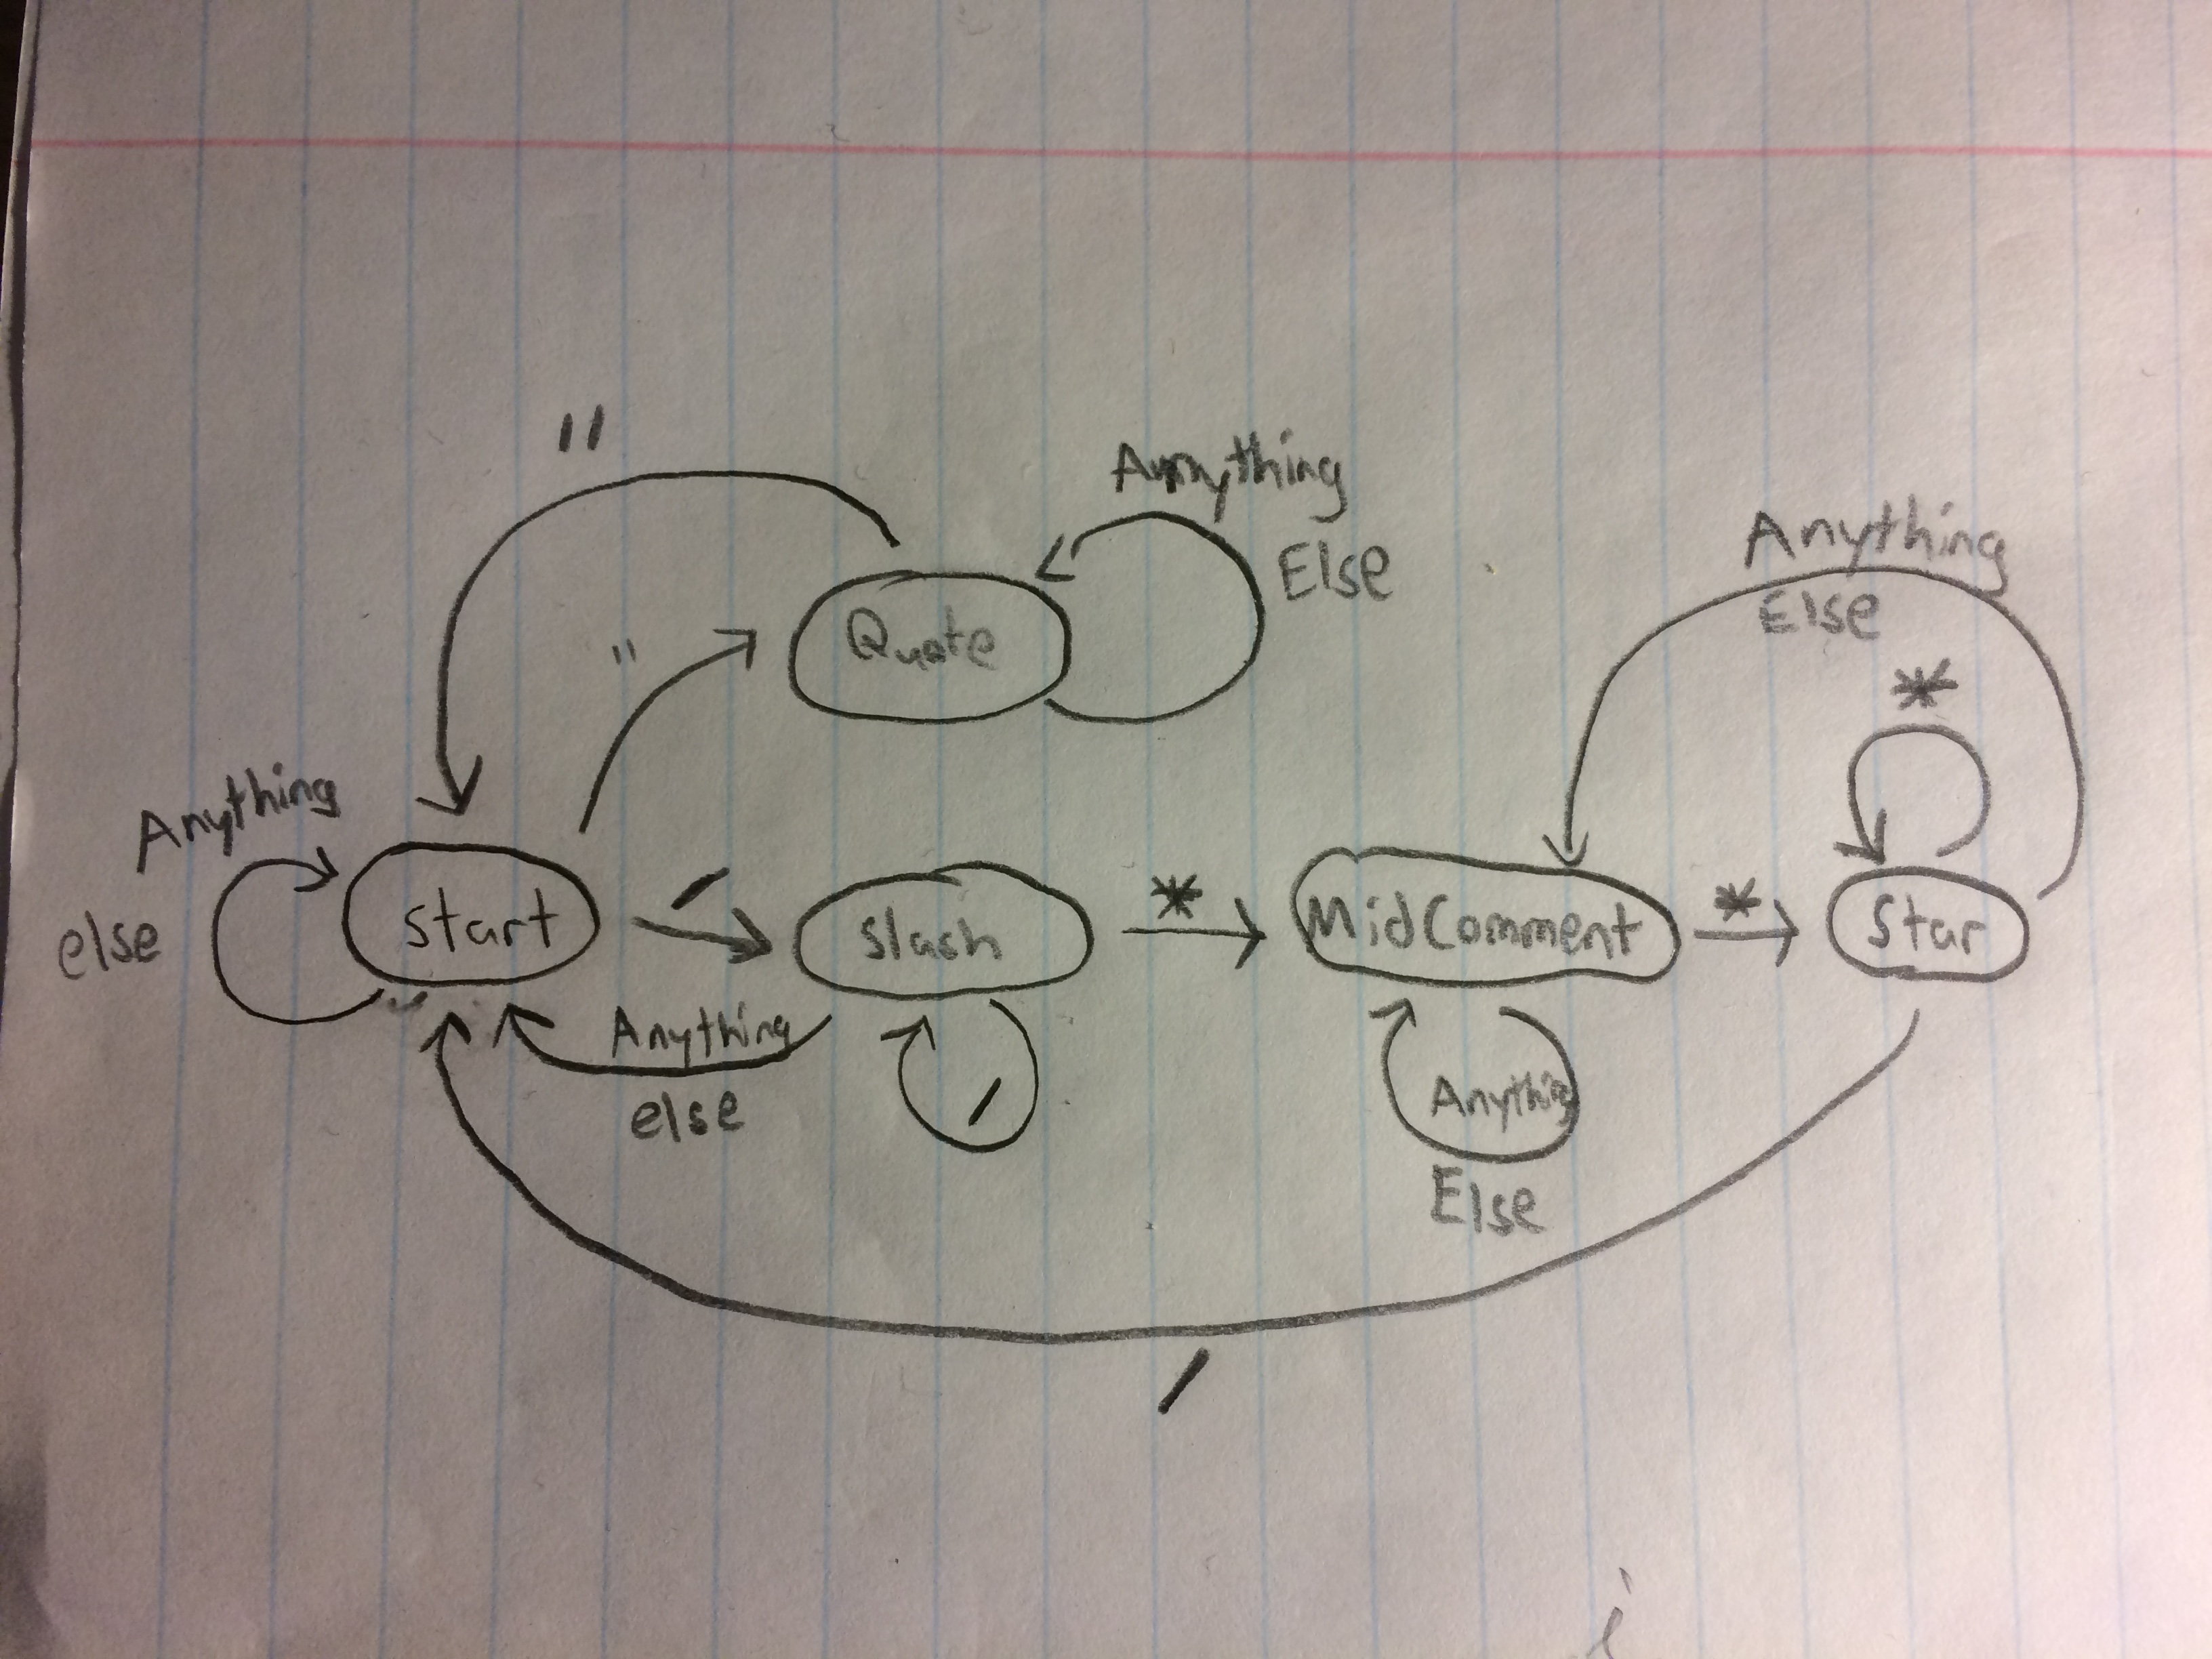 "
Anything
Else
"
Quote
Anything
Else
*
Anything
else
start
/
slash
*
MidComment
*
Star
Anything
else
/
Anything
Else
/
i